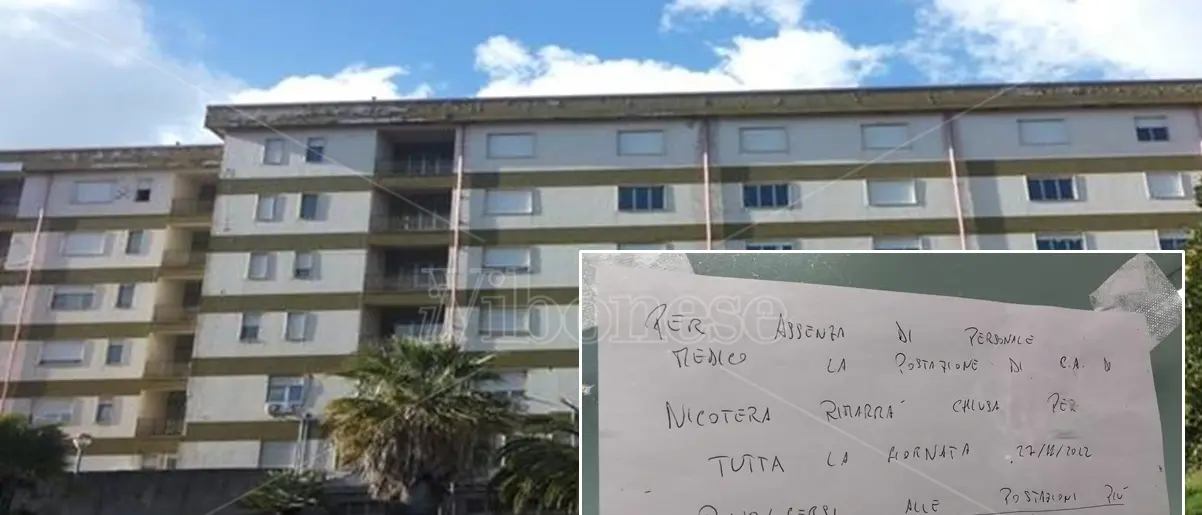 il Vibonese
PER ASSENZA DI PERSONALE
MEDICO LA POSTAZIONE DI C.A. D
NICOTERA RIMARRÀ CHIUSA PER
TUTTA LA GIORNATA
ALLE POSTAZIONI PIÙ